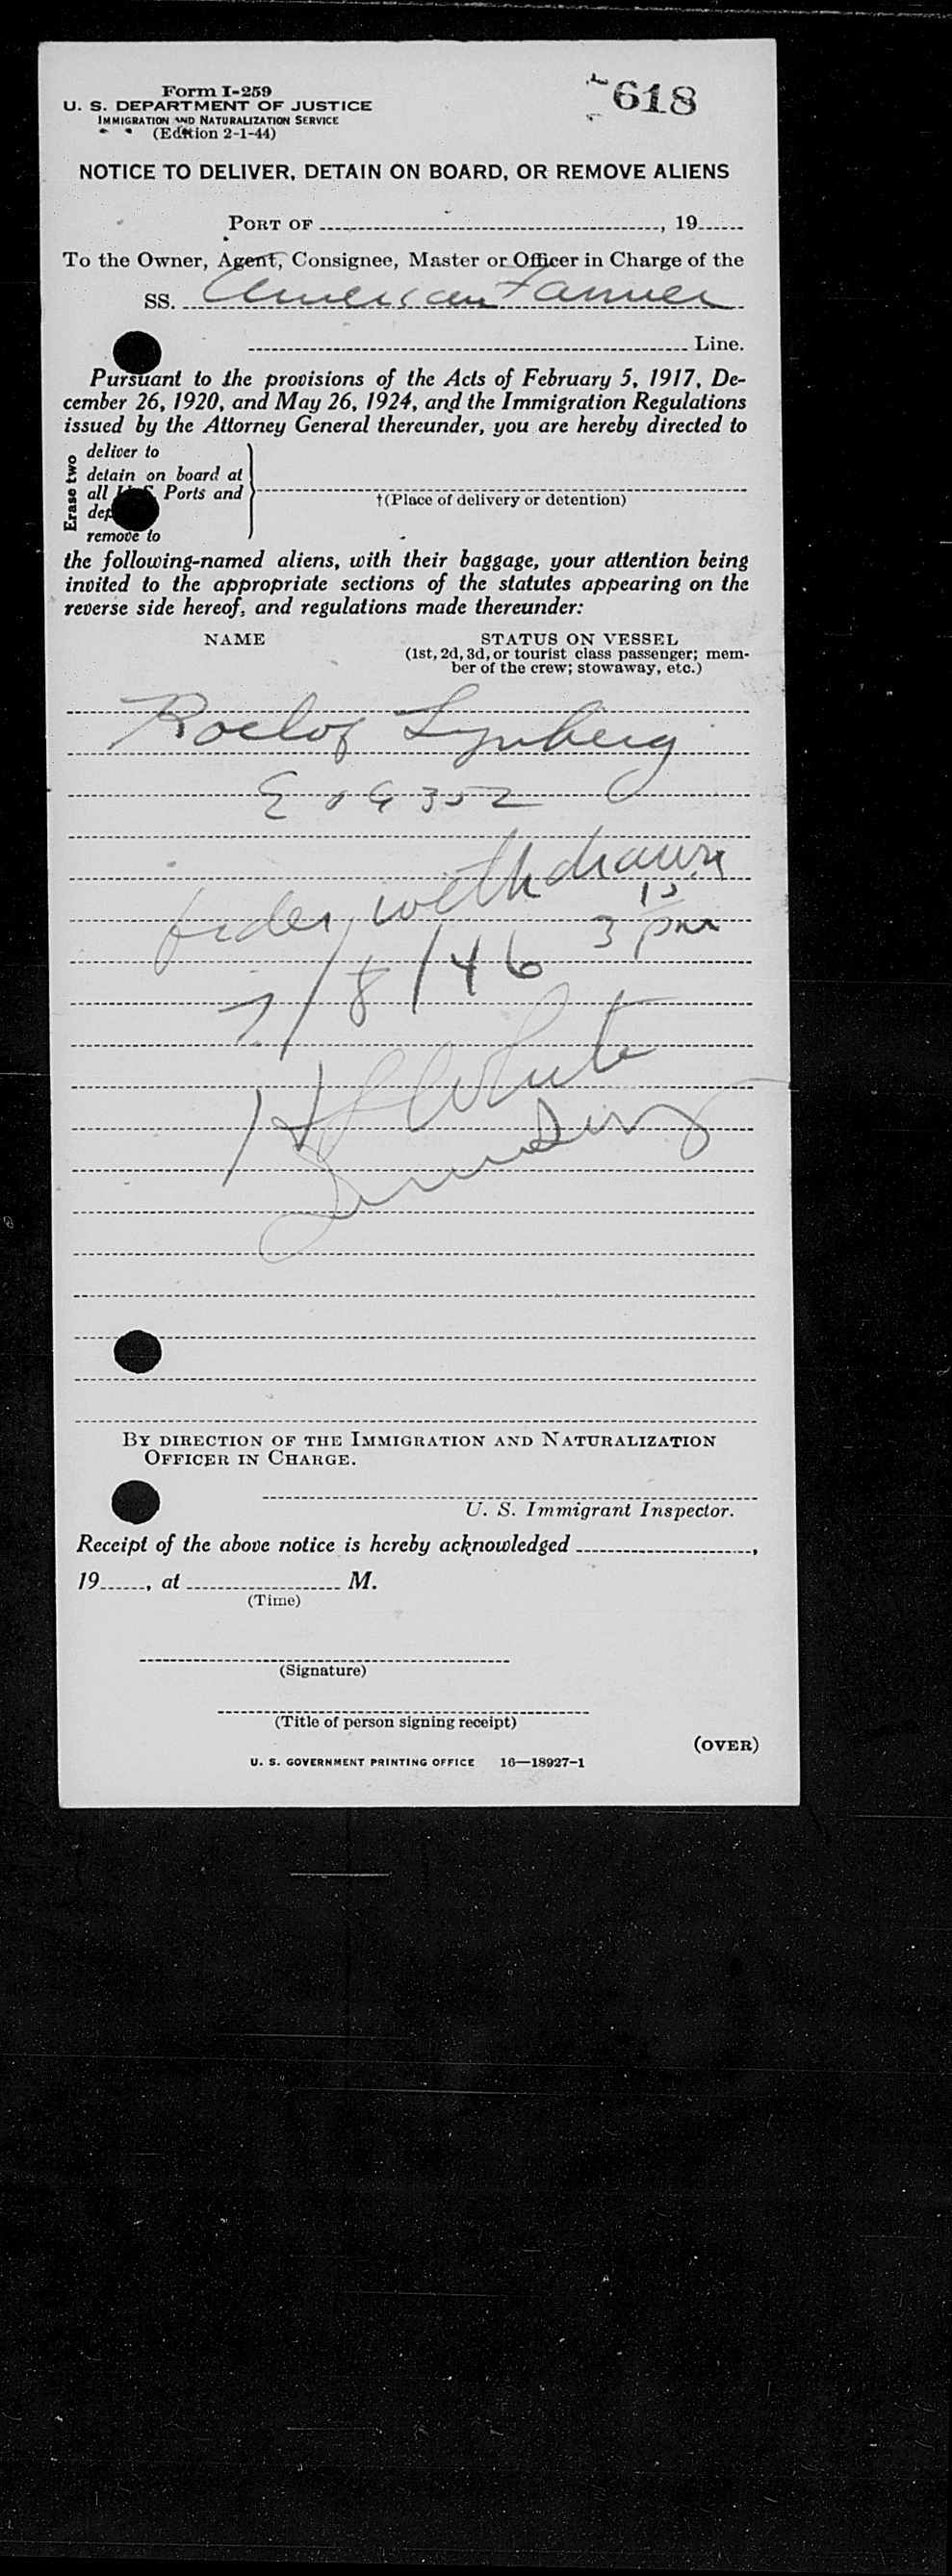 Form I-259
618
U. S. DEPARTMENT OF JUSTICE
IMMIGRATION AND NATURALIZATION SERVICE
(Edition 2-1-44)
NOTICE TO DELIVER, DETAIN ON BOARD, OR REMOVE ALIENS
PORT OF , 19
To the Owner, Agent, Consignee, Master or Officer in Charge of the
SS. American Farmer
Line.
Pursuant to the provisions of the Acts of February 5, 1917, De-
cember 26, 1920, and May 26, 1924, and the Immigration Regulations
issued by the Attorney General thereunder, you are hereby directed to
Erase two
deliver to
detain on board at
all Ports and
remove to
†(Place of delivery or detention)
the following-named aliens, with their baggage, your attention being
invited to the appropriate sections of the statutes appearing on the
reverse side hereof, and regulations made thereunder:
NAME
STATUS ON VESSEL
(1st, 2d, 3d, or tourist class passenger; mem-
ber of the crew; stowaway, etc.)
Roelof
352
order withdrawn
3 15 pm
7/8/46
White
BY DIRECTION OF THE IMMIGRATION AND NATURALIZATION
OFFICER IN CHARGE.
U. S. Immigrant Inspector.
Receipt of the above notice is hereby acknowledged ,
19 , at M.
(Time)
(Signature)
(Title of person signing receipt)
(OVER)
U. S. GOVERNMENT PRINTING OFFICE 16—18927-1